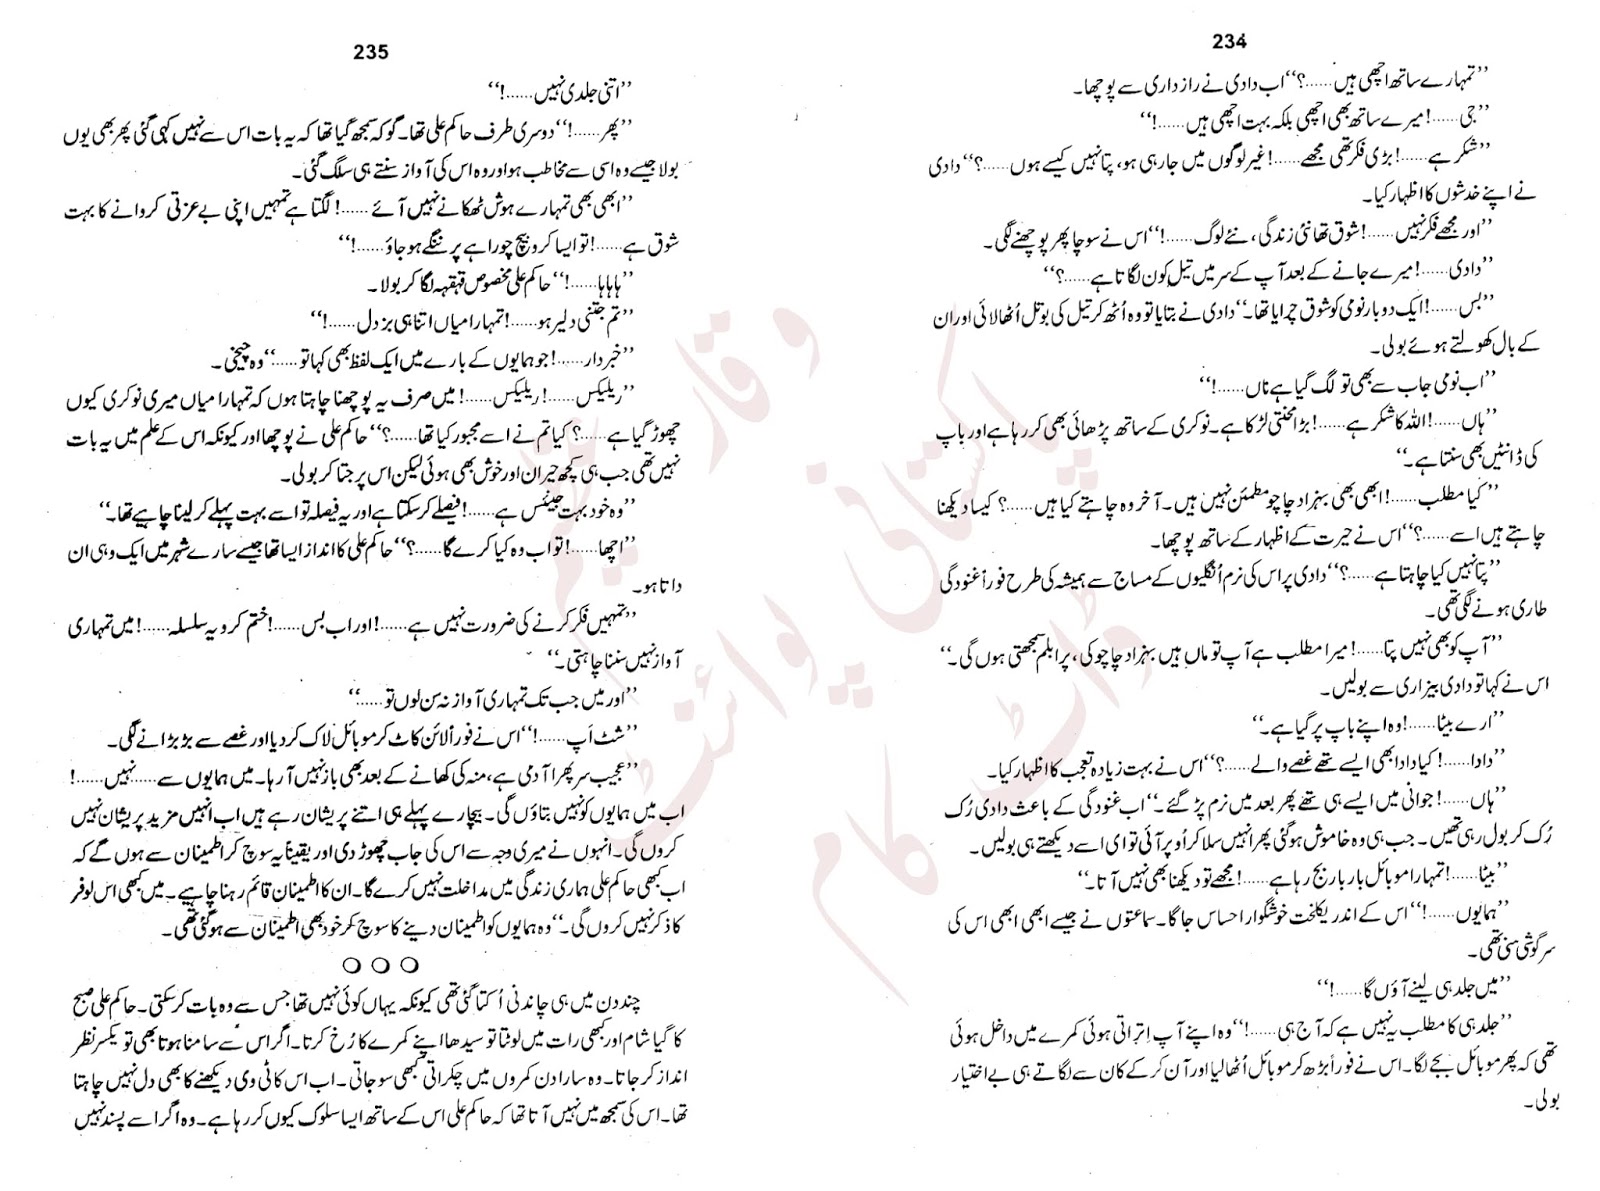 234
’’تمہارے ساتھ اچھی ہیں......؟‘‘ اب دادی نے رازداری سے پوچھا۔
’’جی......! میرے ساتھ بھی اچھی بلکہ بہت اچھی ہیں......!‘‘
’’شکر ہے......! بڑی فکر تھی مجھے......! غیر لوگوں میں جا رہی ہو، پتا نہیں کیسے ہوں......؟‘‘ دادی
نے اپنے خدشوں کا اظہار کیا۔
’’اور مجھے فکر نہیں......! شوق تھا نئی زندگی، نئے لوگ......!‘‘ اس نے سوچا پھر پوچھنے لگی۔
’’دادی......! میرے جانے کے بعد آپ کے سر میں تیل کون لگاتا ہے......؟‘‘
’’بس......! ایک دو بار نومی کو شوق چرایا تھا۔‘‘ دادی نے بتایا تو وہ اُٹھ کر تیل کی بوتل اُٹھا لائی اور ان
کے بال کھولتے ہوئے بولی۔
’’اب نومی جاب سے بھی تو لگ گیا ہے ناں......!‘‘
’’ہاں......! اللہ کا شکر ہے......! بڑا محنتی لڑکا ہے۔ نوکری کے ساتھ پڑھائی بھی کر رہا ہے اور باپ
کی ڈانٹیں بھی سنتا ہے۔‘‘
’’کیا مطلب......! ابھی بھی بہزاد چاچو مطمئن نہیں ہیں۔ آخر وہ چاہتے کیا ہیں......؟ کیسا دیکھنا
چاہتے ہیں اسے......؟‘‘ اس نے حیرت کے اظہار کے ساتھ پوچھا۔
’’پتا نہیں کیا چاہتا ہے......؟‘‘ دادی پر اس کی نرم اُنگلیوں کے مساج سے ہمیشہ کی طرح فوراً غنودگی
طاری ہونے لگی تھی۔
’’آپ کو بھی نہیں پتا......! میرا مطلب ہے آپ تو ماں ہیں بہزاد چاچو کی، پرابلم سمجھتی ہوں گی۔‘‘
اس نے کہا تو دادی بیزاری سے بولیں۔
’’ارے بیٹا......! وہ اپنے باپ پر گیا ہے۔‘‘
’’دادا......! کیا دادا بھی ایسے تھے غصے والے......؟‘‘ اس نے بہت زیادہ تعجب کا اظہار کیا۔
’’ہاں......! جوانی میں ایسے ہی تھے پھر بعد میں نرم پڑ گئے۔‘‘ اب غنودگی کے باعث دادی رُک
رُک کر بول رہی تھیں۔ جب ہی وہ خاموش ہو گئی پھر انہیں سلا کر اُوپر آئی تو امی اسے دیکھتے ہی بولیں۔
’’بیٹا......! تمہارا موبائل بار بار بج رہا ہے......! مجھے تو دیکھنا بھی نہیں آتا۔‘‘
’’ہمایوں......!‘‘ اس کے اندر یکلخت خوشگوار احساس جاگا۔ سماعتوں نے جیسے ابھی ابھی اس کی
سرگوشی سنی تھی۔
’’میں جلد ہی لینے آؤں گا......!‘‘
’’جلد ہی کا مطلب یہ نہیں ہے کہ آج ہی......!‘‘ وہ اپنے آپ اِتراتی ہوئی کمرے میں داخل ہوئی
تھی کہ پھر موبائل بجنے لگا۔ اس نے فوراً بڑھ کر موبائل اُٹھا لیا اور آن کر کے کان سے لگاتے ہی بے اختیار
بولی۔
235
’’اتنی جلدی نہیں......!‘‘
’’پھر......!‘‘ دوسری طرف حاکم علی تھا۔ گو کہ سمجھ گیا تھا کہ یہ بات اس سے نہیں کہی گئی پھر بھی یوں
بولا جیسے وہ اسی سے مخاطب ہو اور وہ اس کی آواز سنتے ہی سلگ گئی۔
’’ابھی بھی تمہارے ہوش ٹھکانے نہیں آئے......! لگتا ہے تمہیں اپنی بے عزتی کروانے کا بہت
شوق ہے......! تو ایسا کرو بیچ چوراہے پر ننگے ہو جاؤ......!‘‘
’’ہاہاہا......!‘‘ حاکم علی مخصوص قہقہہ لگا کر بولا۔
’’تم جتنی دلیر ہو......! تمہارا میاں اتنا ہی بزدل......!‘‘
’’خبردار......! جو ہمایوں کے بارے میں ایک لفظ بھی کہا تو......‘‘ وہ چیخی۔
’’ریلیکس......! ریلیکس......! میں صرف یہ پوچھنا چاہتا ہوں کہ تمہارا میاں میری نوکری کیوں
چھوڑ گیا ہے......؟ کیا تم نے اسے مجبور کیا تھا......؟‘‘ حاکم علی نے پوچھا اور کیونکہ اس کے علم میں یہ بات
نہیں تھی جب ہی کچھ حیران اور خوش بھی ہوئی لیکن اس پر جتا کر بولی۔
’’وہ خود بہت جینئس ہے......! فیصلے کر سکتا ہے اور یہ فیصلہ تو اسے بہت پہلے کر لینا چاہیے تھا۔‘‘
’’اچھا......! تو اب وہ کیا کرے گا......؟‘‘ حاکم علی کا انداز ایسا تھا جیسے سارے شہر میں ایک وہی ان
داتا ہو۔
’’تمہیں فکر کرنے کی ضرورت نہیں ہے......! اور اب بس......! ختم کرو یہ سلسلہ......! میں تمہاری
آواز نہیں سننا چاہتی۔‘‘
’’اور میں جب تک تمہاری آواز نہ سن لوں تو......‘‘
’’شٹ اَپ......!‘‘ اس نے فوراً لائن کاٹ کر موبائل لاک کر دیا اور غصے سے بڑبڑانے لگی۔
’’عجیب سر پھرا آدمی ہے، منہ کی کھانے کے بعد بھی باز نہیں آ رہا۔ میں ہمایوں سے...... نہیں......!
اب میں ہمایوں کو نہیں بتاؤں گی۔ بیچارے پہلے ہی اتنے پریشان رہے ہیں اب انہیں مزید پریشان نہیں
کروں گی۔ انہوں نے میری وجہ سے اس کی جاب چھوڑ دی اور یقیناً یہ سوچ کر اطمینان سے ہوں گے کہ
اب کبھی حاکم علی ہماری زندگی میں مداخلت نہیں کرے گا۔ ان کا اطمینان قائم رہنا چاہیے۔ میں کبھی اس لوفر
کا ذکر نہیں کروں گی۔‘‘ وہ ہمایوں کو اطمینان دینے کا سوچ کر خود بھی اطمینان سے ہو گئی تھی۔
○○○
چند دن میں ہی چاندنی اُکتا گئی تھی کیونکہ یہاں کوئی نہیں تھا جس سے وہ بات کر سکتی۔ حاکم علی صبح
کا گیا شام اور کبھی رات میں لوٹتا تو سیدھا اپنے کمرے کا رُخ کرتا۔ اگر اس سے سامنا ہوتا بھی تو یکسر نظر
انداز کر جاتا۔ وہ سارا دن کمروں میں چکراتی کبھی سو جاتی۔ اب اس کا ٹی وی دیکھنے کا بھی دل نہیں چاہتا
تھا۔ اس کی سمجھ میں نہیں آتا تھا کہ حاکم علی اس کے ساتھ ایسا سلوک کیوں کر رہا ہے۔ وہ اگر اسے پسند نہیں
وقار عظیم
پاکستانی پوائنٹ
ڈاٹ کام